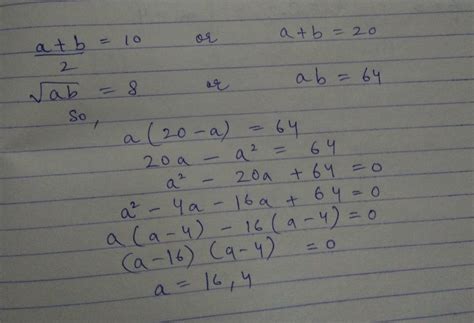 a + b / 2 = 10 or a + b = 20
√ab = 8 or ab = 64
So,
a (20 - a) = 64
20a - a² = 64
a² - 20a + 64 = 0
a² - 4a - 16a + 64 = 0
a (a - 4) - 16 (a - 4) = 0
(a - 16) (a - 4) = 0
a = 16, 4